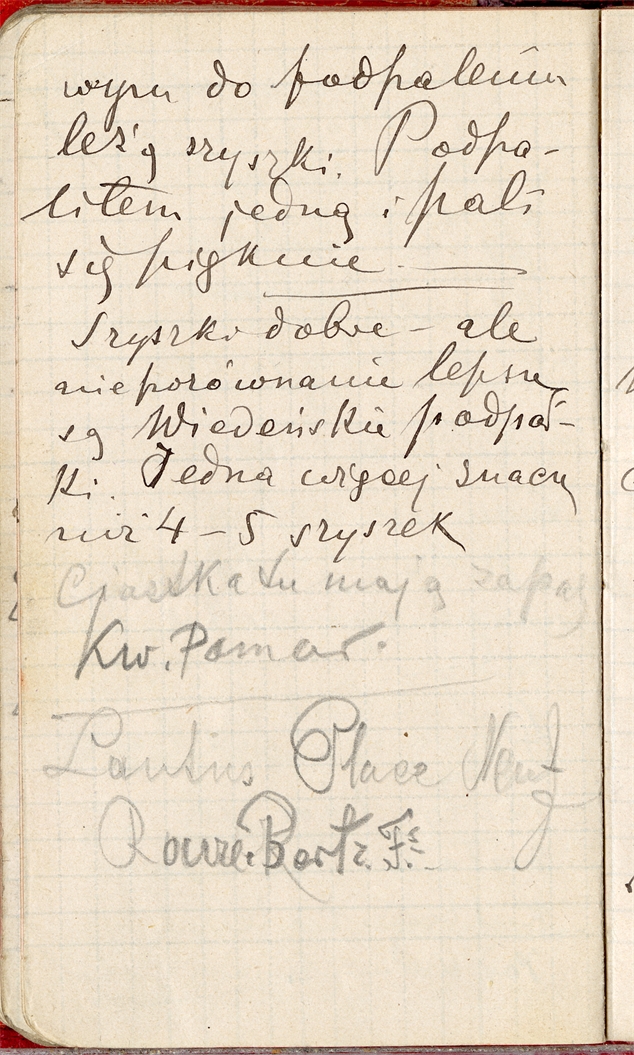 wym do podpalenia
leżą szyszki. Podpa-
liłem jedną i pali
się pięknie —
Szyszki dobre – ale
nieporównanie lepsze
są Wiedeńskie podpał-
ki. Jedna więcej znaczy
niż 4 – 5 szyszek
Ciastka tu mają zapach
Kw. Pomar.
Lautier Place Neuf
Roure Bertr. Fs.